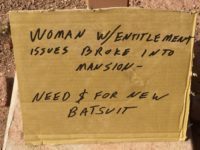 WOMAN W/ENTITLEMENT
ISSUES BROKE INTO
MANSION-
NEED $ FOR NEW
BATSUIT